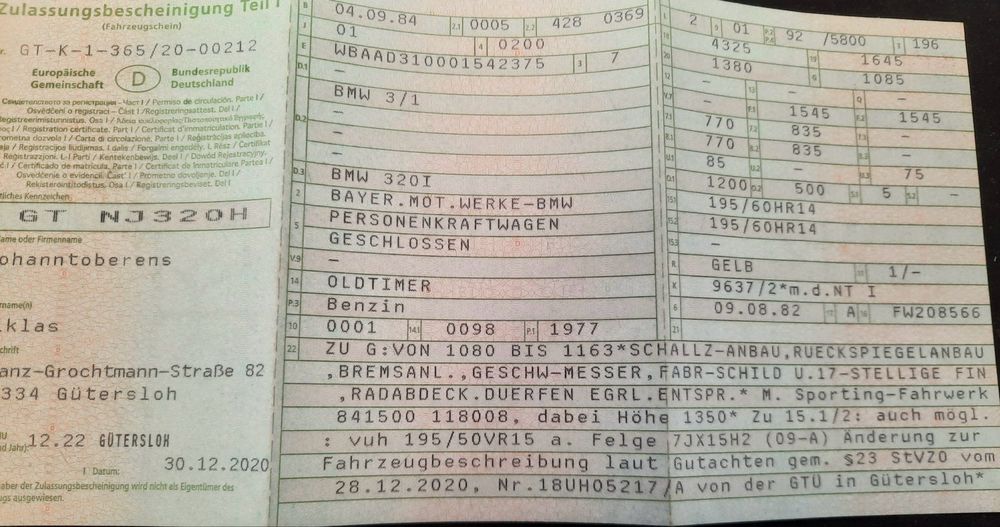 Zulassungsbescheinigung Teil I
(Fahrzeugschein)
Nr. GT-K-1-365/20-00212
Europäische Gemeinschaft
D
Bundesrepublik Deutschland
Permiso de circulación. Parte I /
Osvědčení o registraci – Část I / Registreringsattest. Del I /
Registreerimistunnistus. Osa I /
Registration certificate. Part I / Certificat d'immatriculation. Partie I /
Prometna dozvola I / Carta di circolazione. Parte I / Reģistrācijas apliecība.
Registracijos liudijimas. I dalis / Forgalmi engedély. I. Rész / Certifikat
Registrazzjoni. L-I Parti / Kentekenbewijs. Deel I / Dowód Rejestracyjny.
Certificado de matrícula. Parte I / Certificat de înmatriculare Partea I /
Osvedčenie o evidencii. Časť I / Prometno dovoljenje. Del I /
Rekisteröintitodistus. Osa I / Registreringsbeviset. Del I
tliches Kennzeichen
GT NJ320H
ame oder Firmenname
ohanntoberens
rname(n)
klas
chrift
anz-Grochtmann-Straße 82
334 Gütersloh
HU
nd Jahr): 12.22 GÜTERSLOH
I. Datum: 30.12.2020
aber der Zulassungsbescheinigung wird nicht als Eigentümer des
ugs ausgewiesen.
B 04.09.84 2.1 0005 2.2 428 0369
J 01 4 0200
E WBAAD310001542375 3 7
D.1 –
BMW 3/1
D.2 –
–
–
D.3 BMW 320I
2 BAYER.MOT.WERKE-BMW
5 PERSONENKRAFTWAGEN
GESCHLOSSEN
V.9 –
14 OLDTIMER
P.3 Benzin
10 0001 14.1 0098 P.1 1977
L 2 9 01 P.2 P.4 92 /5800 T 196
18 4325 19 1645
20 1380 G 1085
12 – 13 – Q –
V.7 – F.1 1545 F.2 1545
7.1 770 7.2 835 7.3 –
8.1 770 8.2 835 8.3 –
U.1 85 U.2 – U.3 75
O.1 1200 O.2 500 S.1 5 S.2 –
15.1 195/60HR14
15.2 195/60HR14
15.3 –
R GELB 11 1/–
K 9637/2*m.d.NT I
6 09.08.82 17 A 16 FW208566
21
22 ZU G:VON 1080 BIS 1163*SCHALLZ-ANBAU,RUECKSPIEGELANBAU
,BREMSANL.,GESCHW-MESSER,FABR-SCHILD U.17-STELLIGE FIN
,RADABDECK.DUERFEN EGRL.ENTSPR.* M. Sporting-Fahrwerk
841500 118008, dabei Höhe 1350* Zu 15.1/2: auch mögl.
: vuh 195/50VR15 a. Felge 7JX15H2 (09-A) Änderung zur
Fahrzeugbeschreibung laut Gutachten gem. §23 StVZO vom
28.12.2020, Nr.18UH05217/A von der GTÜ in Gütersloh*